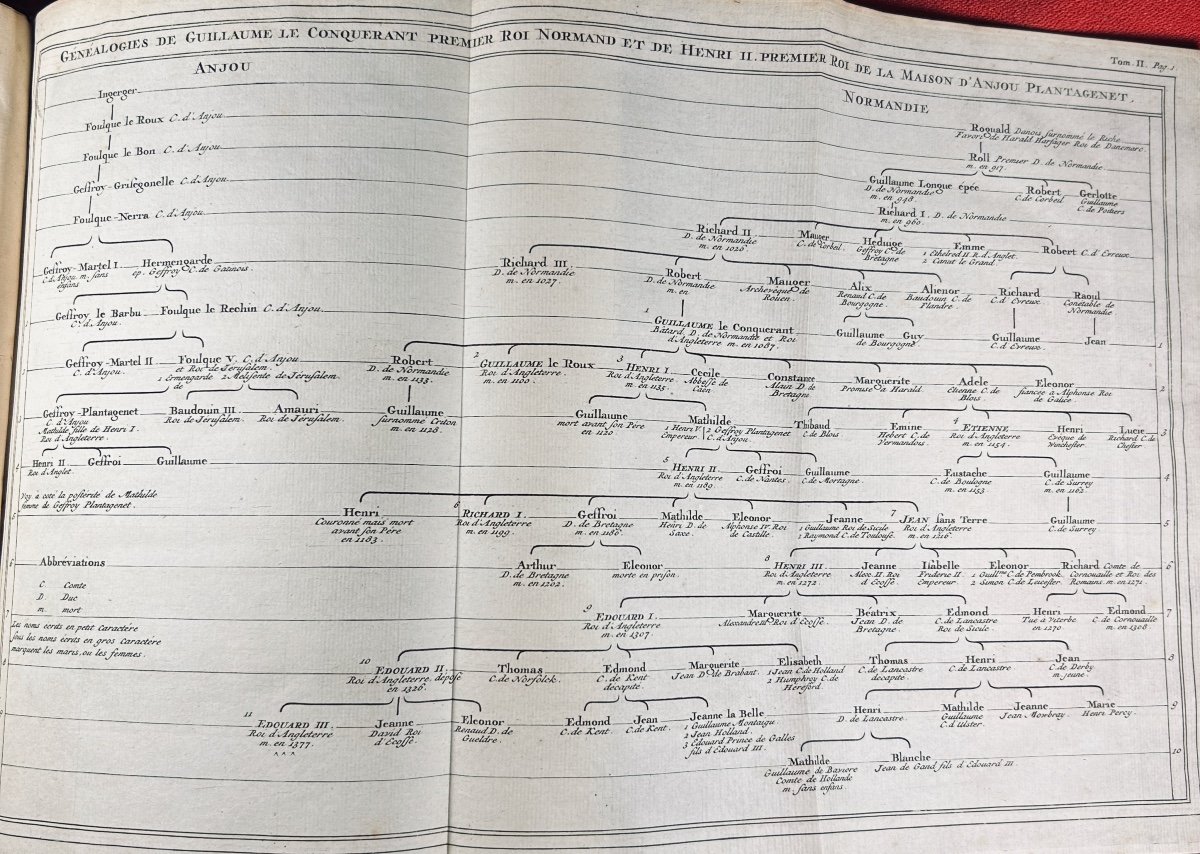 GÉNÉALOGIES DE GUILLAUME LE CONQUERANT PREMIER ROI NORMAND ET DE HENRI II. PREMIER ROI DE LA MAISON D'ANJOU PLANTAGENET.
Tom. II. Pag. 1
ANJOU
NORMANDIE
Ingerger
Foulque le Roux C. d'Anjou
Foulque le Bon C. d'Anjou
Geffroy-Grisegonelle C. d'Anjou
Foulque-Nerra C. d'Anjou
Geffroy-Martel I
C. d'Anjou m. sans
enfans
Hermengarde
ep. Geffroy C. de Gatinois
Geffroy le Barbu
C. d'Anjou
Foulque le Rechin C. d'Anjou
Geffroy-Martel II
C. d'Anjou
Foulque V. C. d'Anjou
et Roi de Jérusalem
1 Ermengarde 2 Melisente de Jérusalem
de
Geffroy-Plantagenet
C. d'Anjou
Mathilde fille de Henri I.
Roi d'Angleterre
Baudouin III
Roi de Jerusalem
Amauri
Roi de Jérusalem
Henri II
Roi d'Anglet.
Geffroi
Guillaume
Voy à coté la posterité de Mathilde
femme de Geffroy Plantagenet.
Abbréviations
C. Comte
D. Duc
m. mort
Les noms ecrits en petit Caractére
sous les noms ecrits en gros Caractére
marquent les maris, ou les femmes.
Roguald Danois surnommé le Riche
Favori de Harald Harfager Roi de Danemarc
Roll Premier D. de Normandie
m. en 917.
Guillaume Longue épée
D. de Normandie
m. en 948.
Robert
C. de Corbeil
Gerlotte
Guillaume
C. de Poitiers
Richard I. D. de Normandie
m. en 960.
Richard II
D. de Normandie
m. en 1026
Mauger
C. de Corbeil
Heduige
Geffroy C. de
Bretagne
Emme
1 Ethelred II R. d'Anglet.
2 Canut le Grand
Robert C. d'Evreux
Richard III
D. de Normandie
m. en 1027.
Robert
D. de Normandie
m. en
Mauger
Archevêque de
Rouen.
Alix
Renaud C. de
Bourgogne
Alienor
Baudouin C. de
Flandre
Richard
C. d'Evreux
Raoul
Conétable de
Normandie
1 GUILLAUME le Conquerant
Bâtard. D. de Normandie et Roi
d'Angleterre m. en 1087.
Guillaume
Guy
de Bourgogne
Guillaume
C. d'Evreux
Jean
Robert
D. de Normandie
m. en 1135.
2 GUILLAUME le Roux
Roi d'Angleterre
m. en 1100.
3 HENRI I
Roi d'Angleterre
m. en 1135.
Cecile
Abbesse de
Caën
Constance
Alain D. de
Bretagne
Marguerite
Promise à Harald
Adele
Etienne C. de
Blois
Eleonor
fiancée à Alphonse Roi
de Galice.
Guillaume
surnommé Criton
m. en 1128.
Guillaume
mort avant son Pére
en 1120
Mathilde
1 Henri V
Empereur
2 Geffroy Plantagenet
C. d'Anjou
Thibaud
C. de Blois
Emine
Hebert C. de
Vermandois
4 ETIENNE
Roi d'Angleterre
m. en 1154.
Henri
Evêque de
Winchester
Lucie
Richard C. de
Chester
5 HENRI II
Roi d'Angleterre
m. en 1189.
Geffroi
C. de Nantes
Guillaume
C. de Mortagne
Eustache
C. de Boulogne
m. en 1153
Guillaume
C. de Surrey
m. en 1162
Henri
Couronné mais mort
avant son Pére
en 1183.
6 RICHARD I
Roi d'Angleterre
m. en 1199.
Geffroi
D. de Bretagne
m. en 1186.
Mathilde
Henri D. de
Saxe.
Eleonor
Alphonse IV Roi
de Castille.
Jeanne
1 Guillaume Roi de Sicile
2 Raymond C. de Toulouse.
7 JEAN sans Terre
Roi d'Angleterre
m. en 1216.
Guillaume
C. de Surrey
Arthur
D. de Bretagne
m. en 1202.
Eleonor
morte en prison.
8 HENRI III
Roi d'Angleterre
m. en 1272
Jeanne
Alex. II. Roi
d'Ecosse
Isabelle
Frideric II
Empereur
Eleonor
1 Guill.me C. de Pembrook
2 Simon C. de Leicester
Richard Comte de
Cornouaille et Roi des
Romains m. en 1271.
9 EDOUARD I
Roi d'Angleterre
m. en 1307.
Marguerite
Alexandre III Roi d'Ecosse
Béatrix
Jean D. de
Bretagne
Edmond
C. de Lancastre
Roi de Sicile
Henri
Tué à Viterbe
en 1270
Edmond
C. de Cornouaille
m. en 1308.
10 EDOUARD II
Roi d'Angleterre, deposé
en 1326
Thomas
C. de Norfolck.
Edmond
C. de Kent
decapité
Marguerite
Jean D. de Brabant.
Elisabeth
1 Jean C. de Holland
2 Humphroy C. de
Hereford.
Thomas
C. de Lancastre
decapité
Henri
C. de Lancastre
Jean
C. de Derby
m. jeune.
11 EDOUARD III
Roi d'Angleterre
m. en 1377.
Jeanne
David Roi
d'Ecosse
Eleonor
Renaud D. de
Gueldre.
Edmond
C. de Kent
Jean
C. de Kent
Jeanne la Belle
1 Guillaume Montaigu
2 Jean Holland
3 Edouard Prince de Galles
fils d'Edouard III.
Henri
D. de Lancastre
Mathilde
Guillaume
C. d'Ulster.
Jeanne
Jean Mowbray
Marie
Henri Percy
Mathilde
Guillaume de Baviere
Comte de Hollande
m. sans enfans
Blanche
Jean de Gand fils d'Edouard III.
1
2
3
4
5
6
7
8
9
10